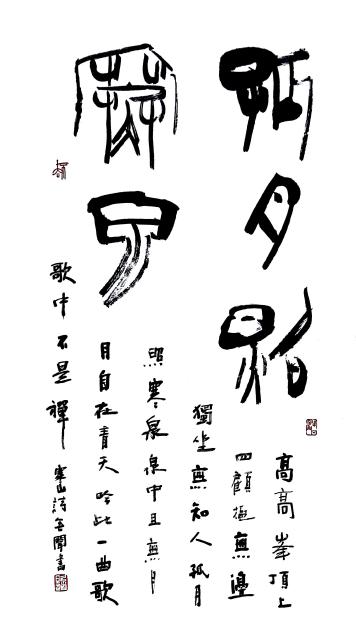 孤月照
寒泉
高高峯頂上
四顧極無邊
獨坐無知人孤月
照寒泉泉中且無月
月自在青天吟此一曲歌
歌中不是禪
寒山詩聞書